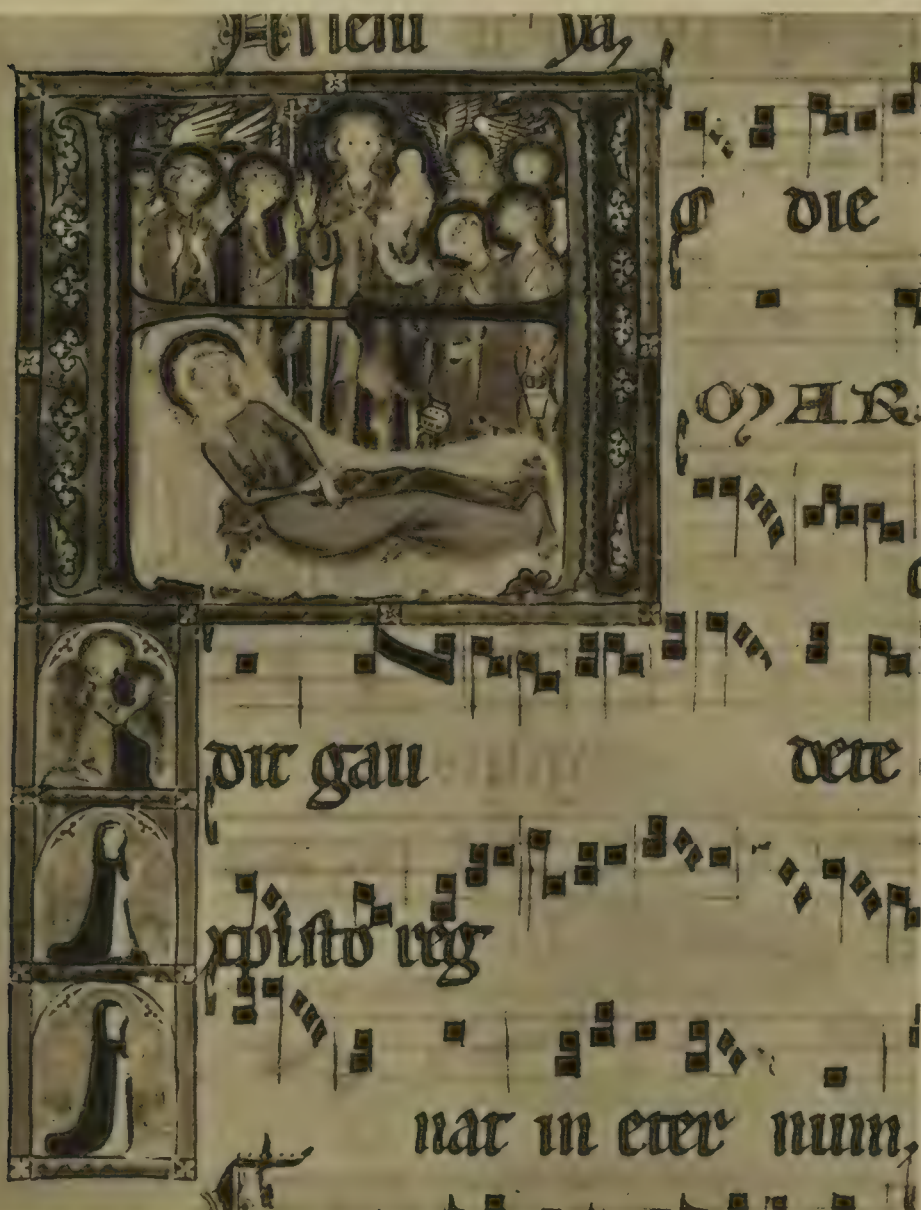 Allelu ya,
die
MAR
dit gau dete
xpisto reg
nat in eter num,